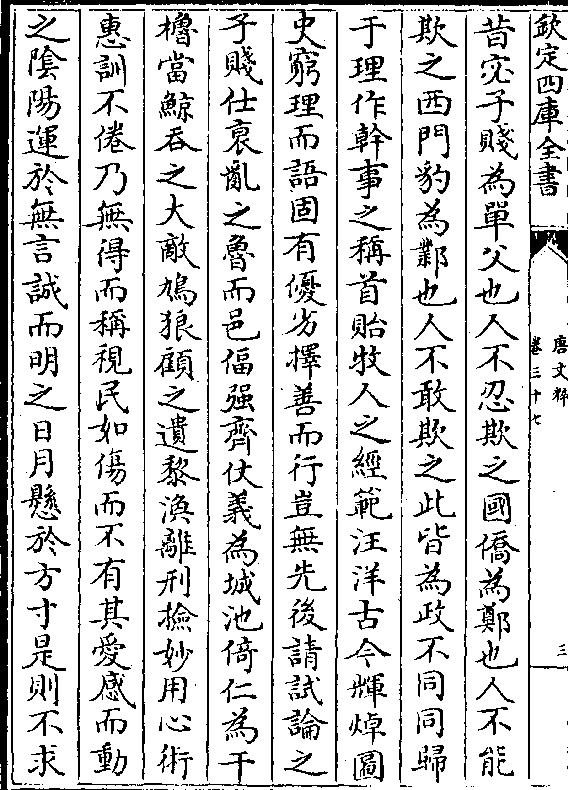 欽定四庫全書
唐文粹
卷三十七
三
昔宓子賤為單父也人不忍欺之國僑為鄭也人不能
欺之西門豹為鄴也人不敢欺之此皆為政不同同歸
于理作幹事之稱首貽牧人之經範汪洋古今輝焯圖
史窮理而語固有優劣擇善而行豈無先後請試論之
子賤仕衰亂之魯而邑偪强齊仗義為城池倚仁為干
櫓當鯨吞之大敵鳩狼顧之遺黎渙離刑撿妙用心術
惠訓不倦乃無得而稱視民如傷而不有其愛感而動
之陰陽運於無言誠而明之日月懸於方寸是則不求